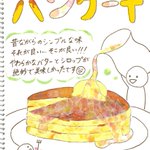 パンケーキ
昔ながらのシンプルな味
それが良い、そこが良い!!!
やわらかなバターとシロップが
絶妙で美味しかったです